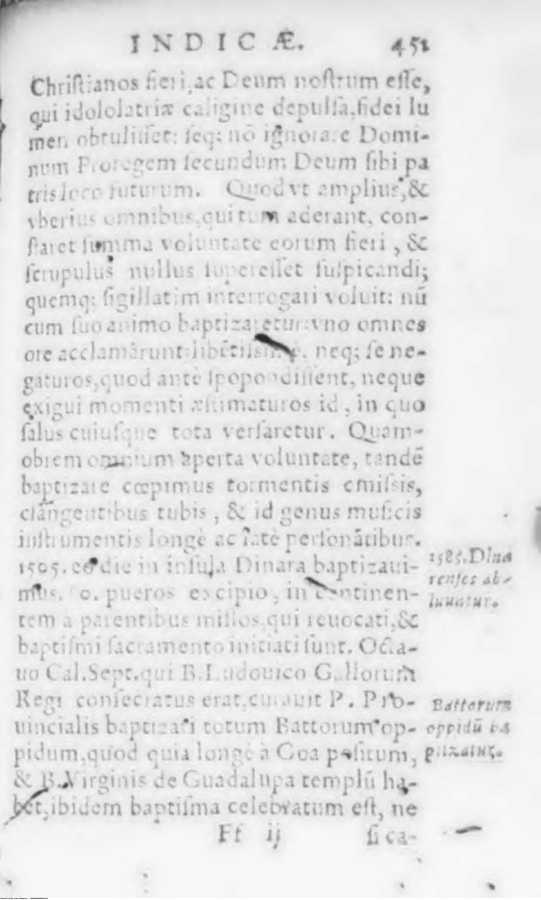 INDICÆ. 451
Chriſtianos fieri, ac Deum noſtrum eſſe,
qui idololatriæ caligine depulſa, fidei lu
men obtuliſſet: ſeq; nō ignorare Domi-
num Proregem ſecundum Deum ſibi pa
tris loco futurum. Quod vt amplius, &
vberius omnibus, qui tum aderant, con-
ſtaret ſumma voluntate eorum fieri, &
ſcrupulus nullus ſupereſſet ſuſpicandi;
quemq; ſigillatim interrogari voluit: nū
cum ſuo animo baptizaretur: vno omnes
ore acclamârunt libētiſsimè, neq; ſe ne-
gaturos, quod antè ſpopondiſſent, neque
exigui momenti æſtimaturos id, in quo
ſalus cuiuſque tota verſaretur. Quam-
obrem omnium aperta voluntate, tandē
baptizare cœpimus tormentis emiſsis,
clāngentibus tubis, & id genus muſicis
inſtrumentis longè ac latè perſonātibur.
eo die in inſula Dinara baptizaui-
1585. Dina
mus. pueros excipio, in continen-
renſes ab-
tem a parentibus miſſos, qui reuocati, &
luuntur.
baptiſmi ſacramento initiati ſunt. Octa-
uo Cal. Sept. qui B. Ludouico Gallorum
Regi conſecratus erat, curauit P. Pro-
Battorum
uincialis baptizari totum Battorum op-
oppidū ba
pidum, quod quia longè à Goa poſitum,
ptizatur.
& B. Virginis de Guadalupa templū ha-
bet, ibidem baptiſma celebratum eſt, ne
Ff ij ſi ca-